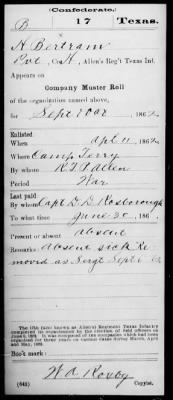 (Confederate.)
B 17 Texas.
H Bertram
Pvt, Co. H, Allen's Reg't Texas Inf.
Appears on
Company Muster Roll
of the organization named above,
for Sept & Oct, 1862.
Enlisted
When Apl 11, 1862.
Where Camp Terry
By whom R T P Allen
Period War
Last paid
By whom Capt D. D. Rosborough
To what time June 30, 186
Present or absent absent
Remarks: absent sick Re
moved as Sergt Sept 1
The 17th (also known as Allen's) Regiment Texas Infantry
Book mark:
W A Roxby
(642) Copyist.